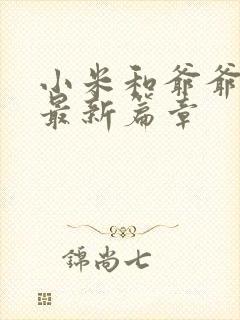 小米和爷爷
最新篇章
錦尚七